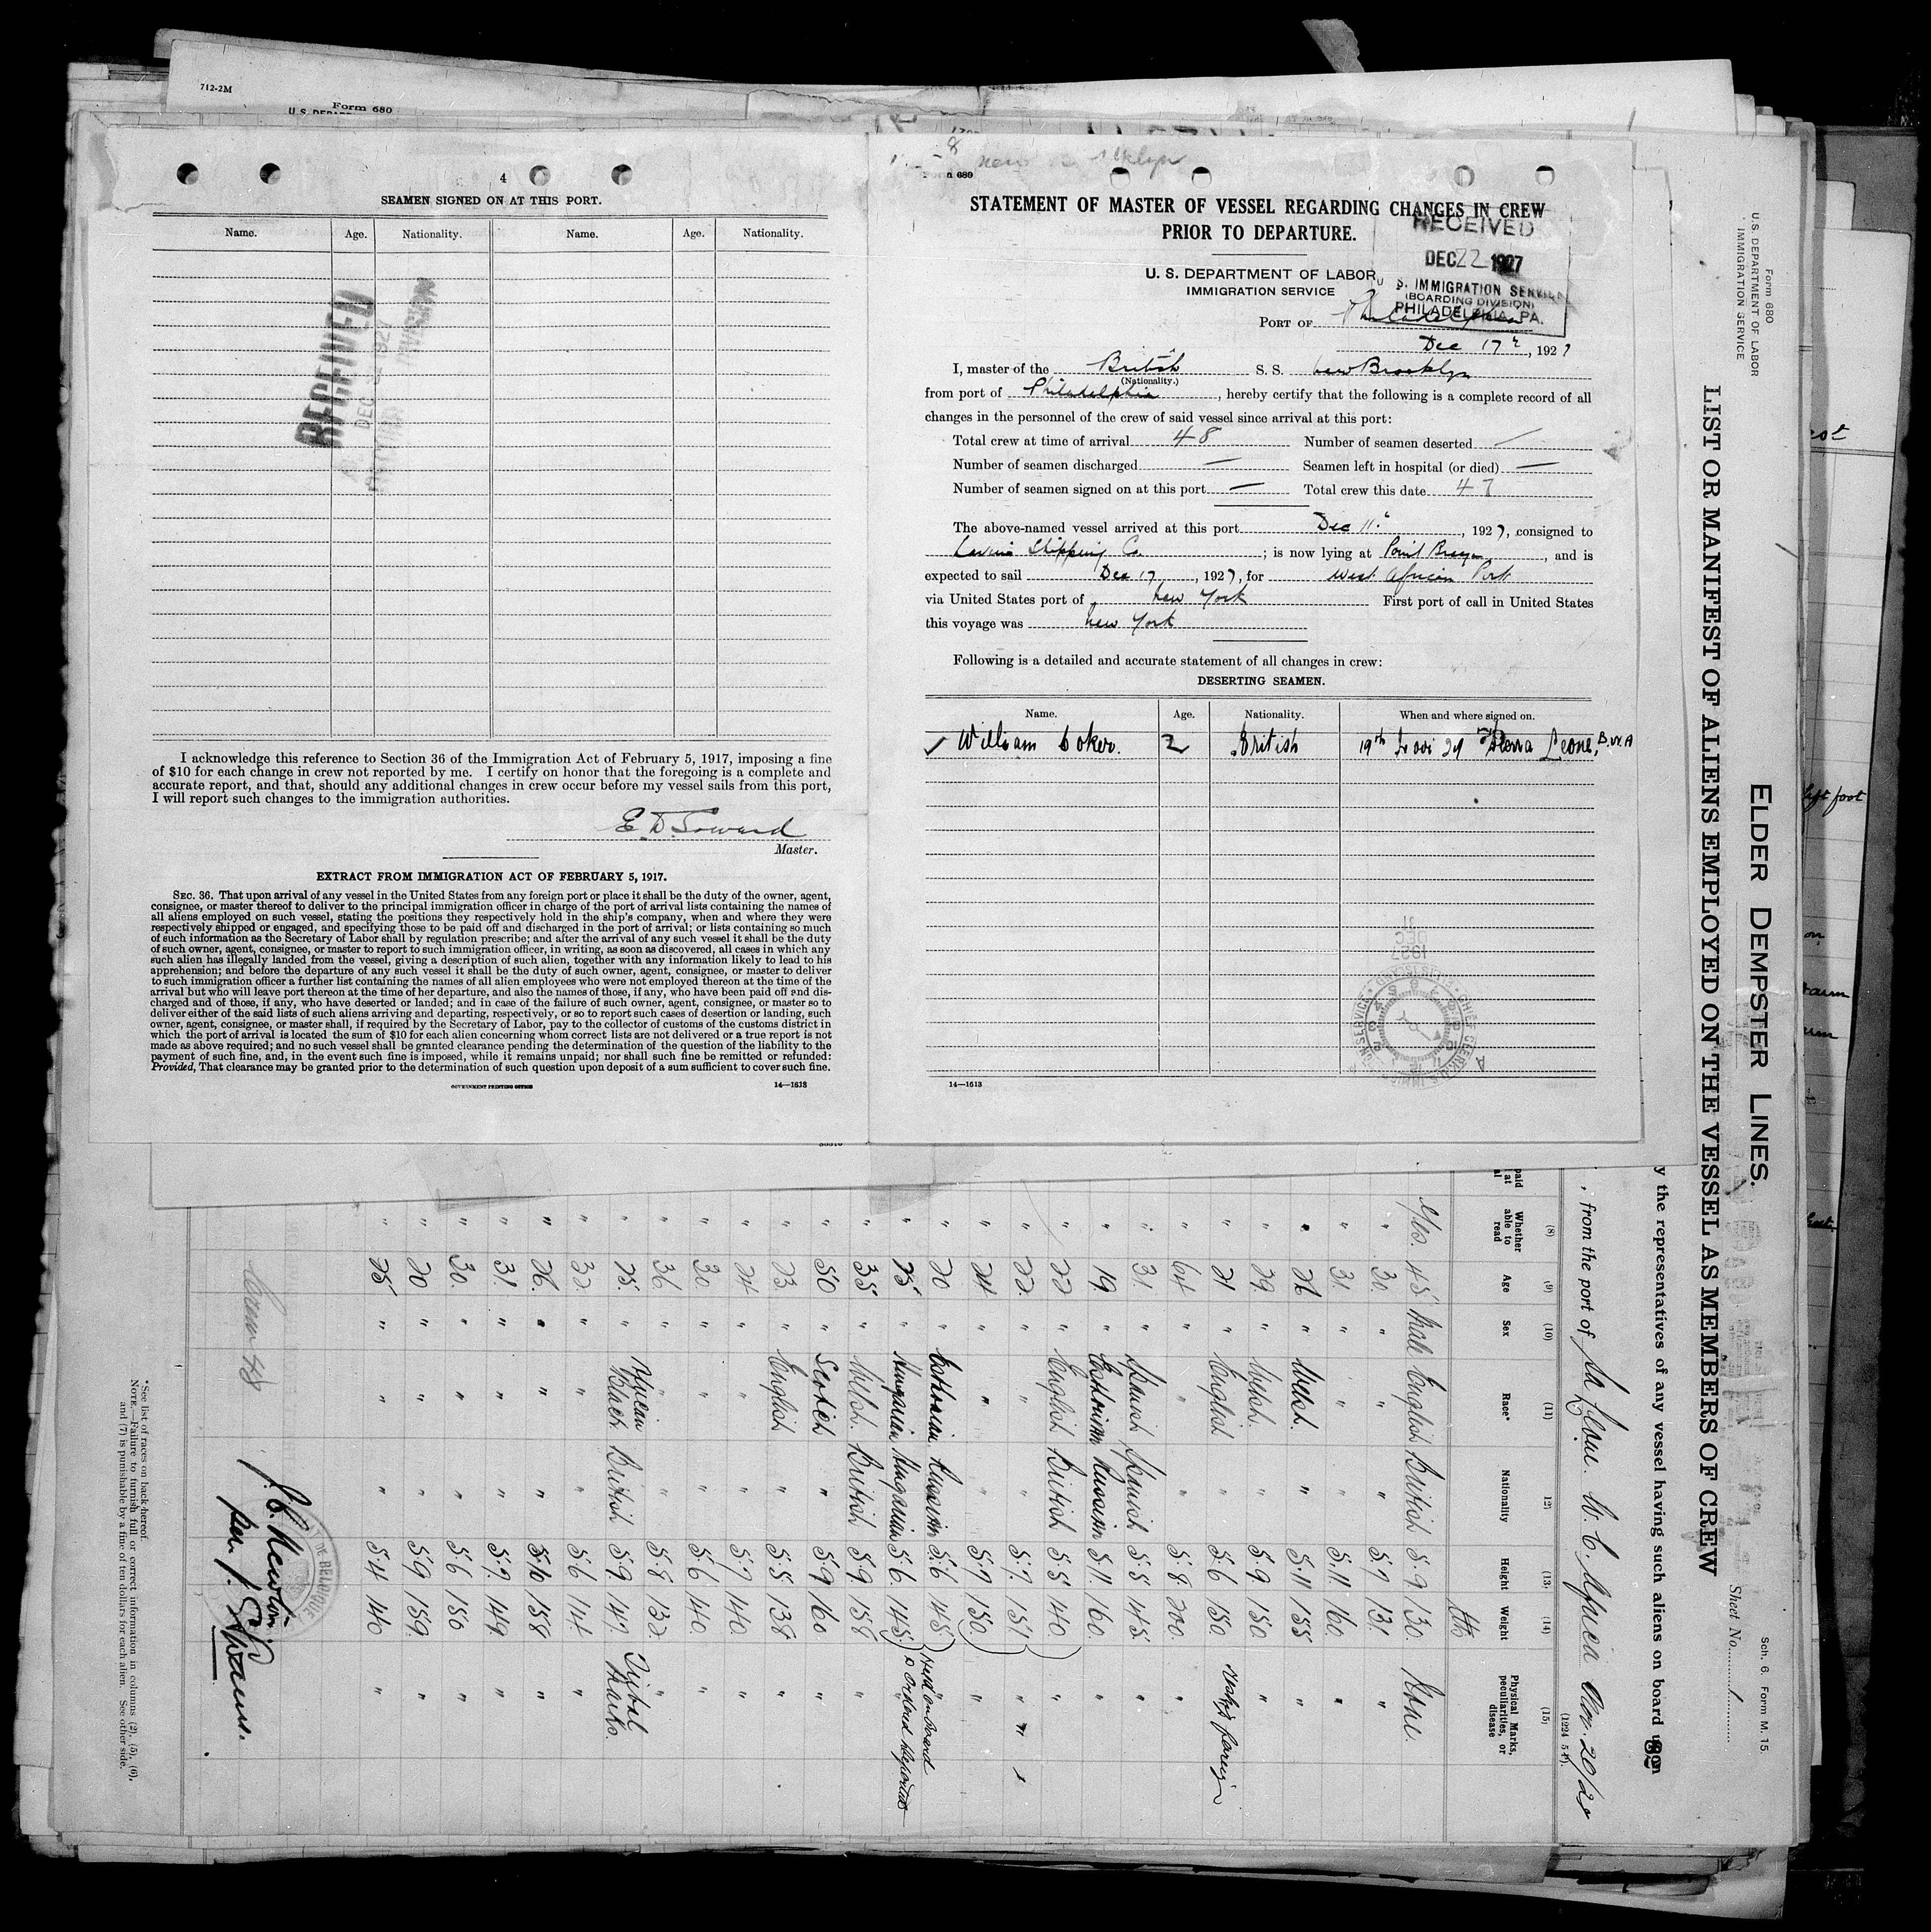 712-2M
Form 680
4
SEAMEN SIGNED ON AT THIS PORT.
Name. Age. Nationality. Name. Age. Nationality.
RECEIVED
DEC
DIVISION
I acknowledge this reference to Section 36 of the Immigration Act of February 5, 1917, imposing a fine
of $10 for each change in crew not reported by me. I certify on honor that the foregoing is a complete and
accurate report, and that, should any additional changes in crew occur before my vessel sails from this port,
I will report such changes to the immigration authorities.
E. D. Soward
Master.
EXTRACT FROM IMMIGRATION ACT OF FEBRUARY 5, 1917.
SEC. 36. That upon arrival of any vessel in the United States from any foreign port or place it shall be the duty of the owner, agent,
consignee, or master thereof to deliver to the principal immigration officer in charge of the port of arrival lists containing the names of
all aliens employed on such vessel, stating the positions they respectively hold in the ship's company, when and where they were
respectively shipped or engaged, and specifying those to be paid off and discharged in the port of arrival; or lists containing so much
of such information as the Secretary of Labor shall by regulation prescribe; and after the arrival of any such vessel it shall be the duty
of such owner, agent, consignee, or master to report to such immigration officer, in writing, as soon as discovered, all cases in which any
such alien has illegally landed from the vessel, giving a description of such alien, together with any information likely to lead to his
apprehension; and before the departure of any such vessel it shall be the duty of such owner, agent, consignee, or master to deliver
to such immigration officer a further list containing the names of all alien employees who were not employed thereon at the time of the
arrival but who will leave port thereon at the time of her departure, and also the names of those, if any, who have been paid off and dis-
charged and of those, if any, who have deserted or landed; and in case of the failure of such owner, agent, consignee, or master so to
deliver either of the said lists of such aliens arriving and departing, respectively, or so to report such cases of desertion or landing, such
owner, agent, consignee, or master shall, if required by the Secretary of Labor, pay to the collector of customs of the customs district in
which the port of arrival is located the sum of $10 for each alien concerning whom correct lists are not delivered or a true report is not
made as above required; and no such vessel shall be granted clearance pending the determination of the question of the liability to the
payment of such fine, and, in the event such fine is imposed, while it remains unpaid; nor shall such fine be remitted or refunded:
Provided, That clearance may be granted prior to the determination of such question upon deposit of a sum sufficient to cover such fine.
GOVERNMENT PRINTING OFFICE 14—1613
Form 680
STATEMENT OF MASTER OF VESSEL REGARDING CHANGES IN CREW
PRIOR TO DEPARTURE.
RECEIVED
DEC 22 1927
U. S. IMMIGRATION SERVICE
(BOARDING DIVISION)
PHILADELPHIA, PA.
U. S. DEPARTMENT OF LABOR
IMMIGRATION SERVICE
PORT OF Philadelphia
Dec 17, 1927
I, master of the British S. S. New Brooklyn
(Nationality.)
from port of Philadelphia, hereby certify that the following is a complete record of all
changes in the personnel of the crew of said vessel since arrival at this port:
Total crew at time of arrival 48 Number of seamen deserted
Number of seamen discharged — Seamen left in hospital (or died) —
Number of seamen signed on at this port — Total crew this date 47
The above-named vessel arrived at this port Dec 11, 1927, consigned to
Shipping Co. ; is now lying at Point Breeze, and is
expected to sail Dec 17, 1927, for West African Port
via United States port of New York First port of call in United States
this voyage was New York
Following is a detailed and accurate statement of all changes in crew:
DESERTING SEAMEN.
Name. Age. Nationality. When and where signed on.
✓ William Coker. 2 British 19th Nov 27 Sierra Leone, B.W.A
DEC
1927
14—1613
Form 680
U.S. DEPARTMENT OF LABOR
IMMIGRATION SERVICE
ELDER DEMPSTER LINES.
LIST OR MANIFEST OF ALIENS EMPLOYED ON THE VESSEL AS MEMBERS OF CREW
Sheet No. 1
Sch. 6. Form M. 15.
y the representatives of any vessel having such aliens on board upon
82
, from the port of W. C. Africa Nov. 20/27
(8) Whether able to read
(9) Age
(10) Sex
(11) Race*
(12) Nationality
(13) Height
(14) Weight
(15) Physical Marks, peculiarities, or disease
Yes. 45 Male English British 5.9 130. None.
" 30. " " " 5.7 131. "
" 31. " " " 5.11 160. "
" 26 " Welsh. " 5.11 155 "
" 29. " Welsh. " 5.9 150. "
" 21 " English " 5.6 150.
" 64 " " " 5.8. 200. "
" 31. " Spanish Spanish 5.5 145. "
" 19. " Esthonian Russian 5.11. 160. "
" 22 " English British 5.5 140. "
" 22. " " " 5.7. 151. "
" 24 " " " 5.7 150. "
" 20 " Esthonian Russian 5.6 145. Held on board
" 25 " Hungarian Hungarian 5.6. 145. & Ordered Deported
" 35 " Welsh. British 5.9. 158 "
" 50 " Scotch " 5.9 160 "
" 23 " English " 5.5. 138 "
" 24 " " " 5.7. 140. "
" 30. " " " 5.6 140. "
" 36 " " " 5.8 132. "
" 25. " African Black British 5.9 147. Tribal Marks.
" 32. " " " 5.6 144. "
" 26. " " " 5.10 158 "
" 31. " " " 5.7. 149. "
" 30. " " " 5.6 150 "
" 20 " " " 5.9 159. "
" 25 " " " 5.4 140 "
Crew 48
DE BELGIQUE
*See list of races on back hereof.
NOTE.—Failure to furnish full or correct information in columns (2), (5), (6),
and (7) is punishable by a fine of ten dollars for each alien. See other side.
left foot